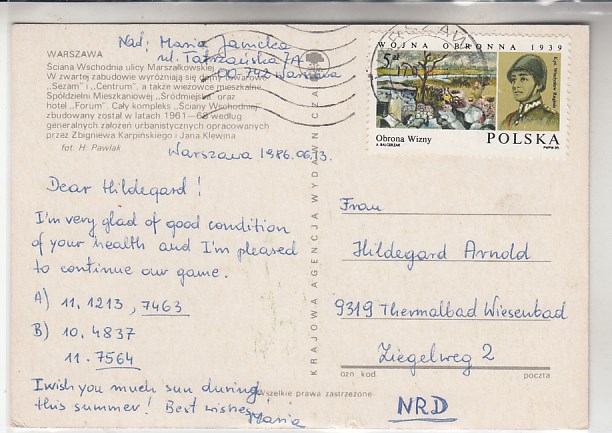 Nad; Maria Janicka
ul. Tatrzańska 7A
00-742 Warszawa
WARSZAWA
Ściana Wschodnia ulicy Marszałkowskiej.
W zwartej zabudowie wyróżniają się domy towarowe
„Sezam" i „Centrum", a także wieżowce mieszkalne
Spółdzielni Mieszkaniowej „Śródmieście" oraz
hotel „Forum". Cały kompleks „Ściany Wschodniej"
zbudowany został w latach 1961—68 według
generalnych założeń urbanistycznych opracowanych
przez Zbigniewa Karpińskiego i Jana Klewina.
fot. H. Pawlak
Warszawa 1986.06.13.
Dear Hildegard!
I'm very glad of good condition
of your health and I'm pleased
to continue our game.
A) 11. 1213, 7463
B) 10. 4837
11. 7564
I wish you much sun during
this summer! Best wishes
Maria
KRAJOWA AGENCJA WYDAWNICZA
WOJNA OBRONNA 1939
5 zł
Kpt. Władysław Raginis
Obrona Wizny
POLSKA
J. BALCERZAK
Frau
Hildegard Arnold
9319 Thermalbad Wiesenbad
Ziegelweg 2
ozn kod
poczta
Wszelkie prawa zastrzeżone
NRD